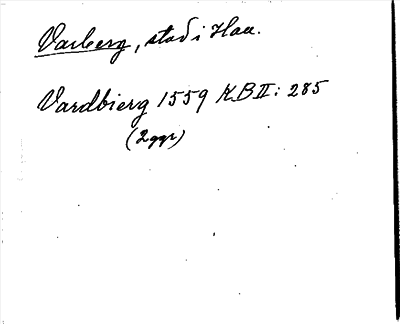 Varberg, stad i Hall.
Vardbierg 1559 KB II: 285
(2 ggr)